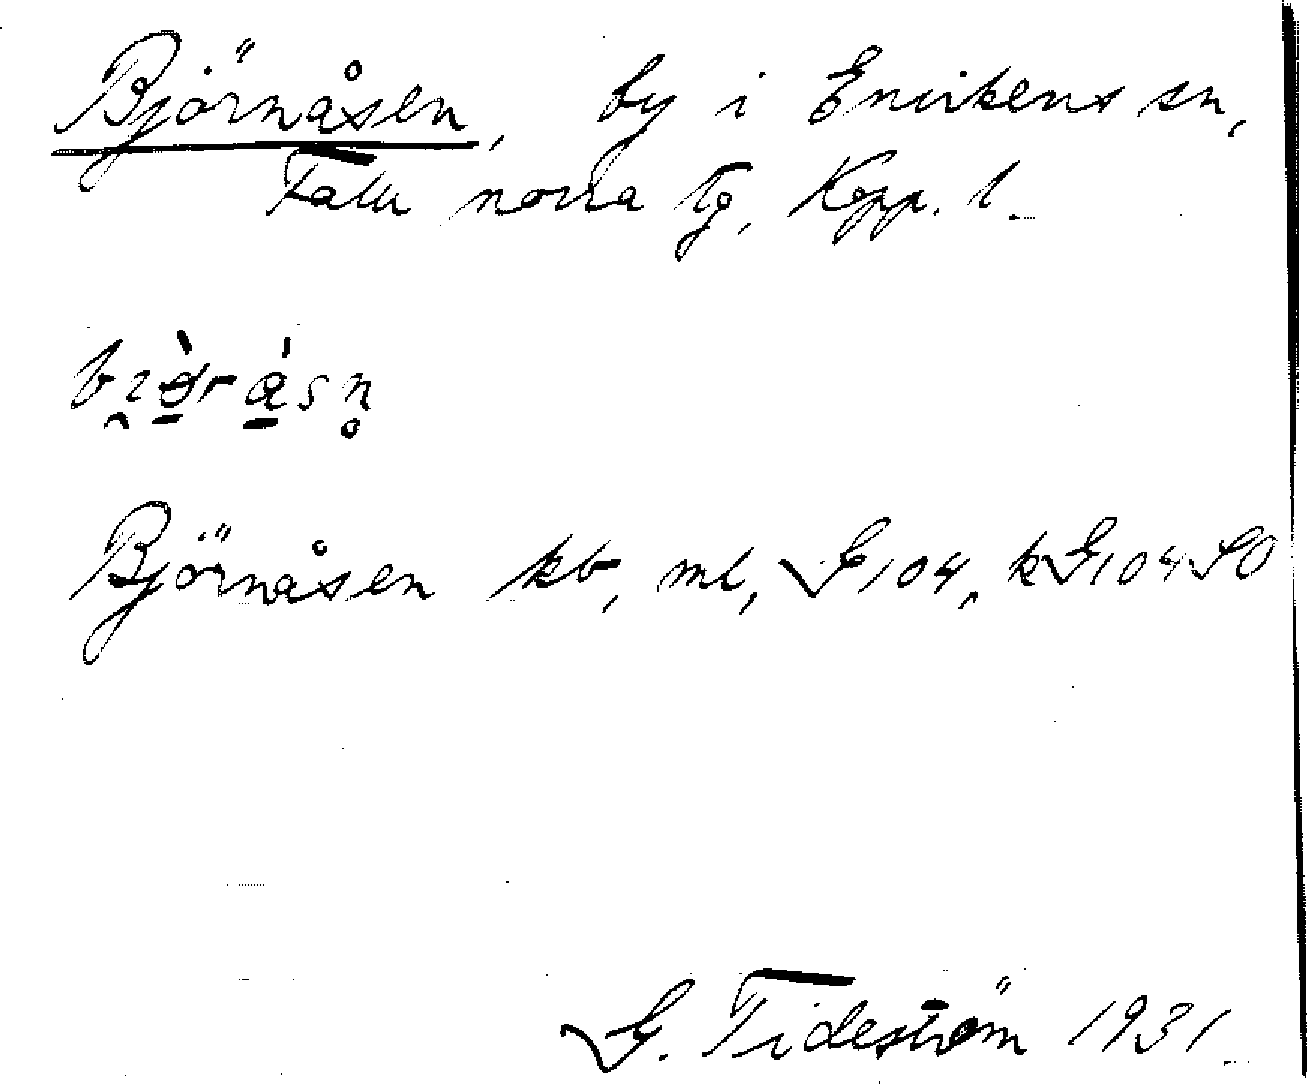 Björnåsen, by i Envikens sn,
Falu norra tg, Kopp. l.
Björnåsen kb, ml, G 104, kG 104 SO
G. Tideström 1931